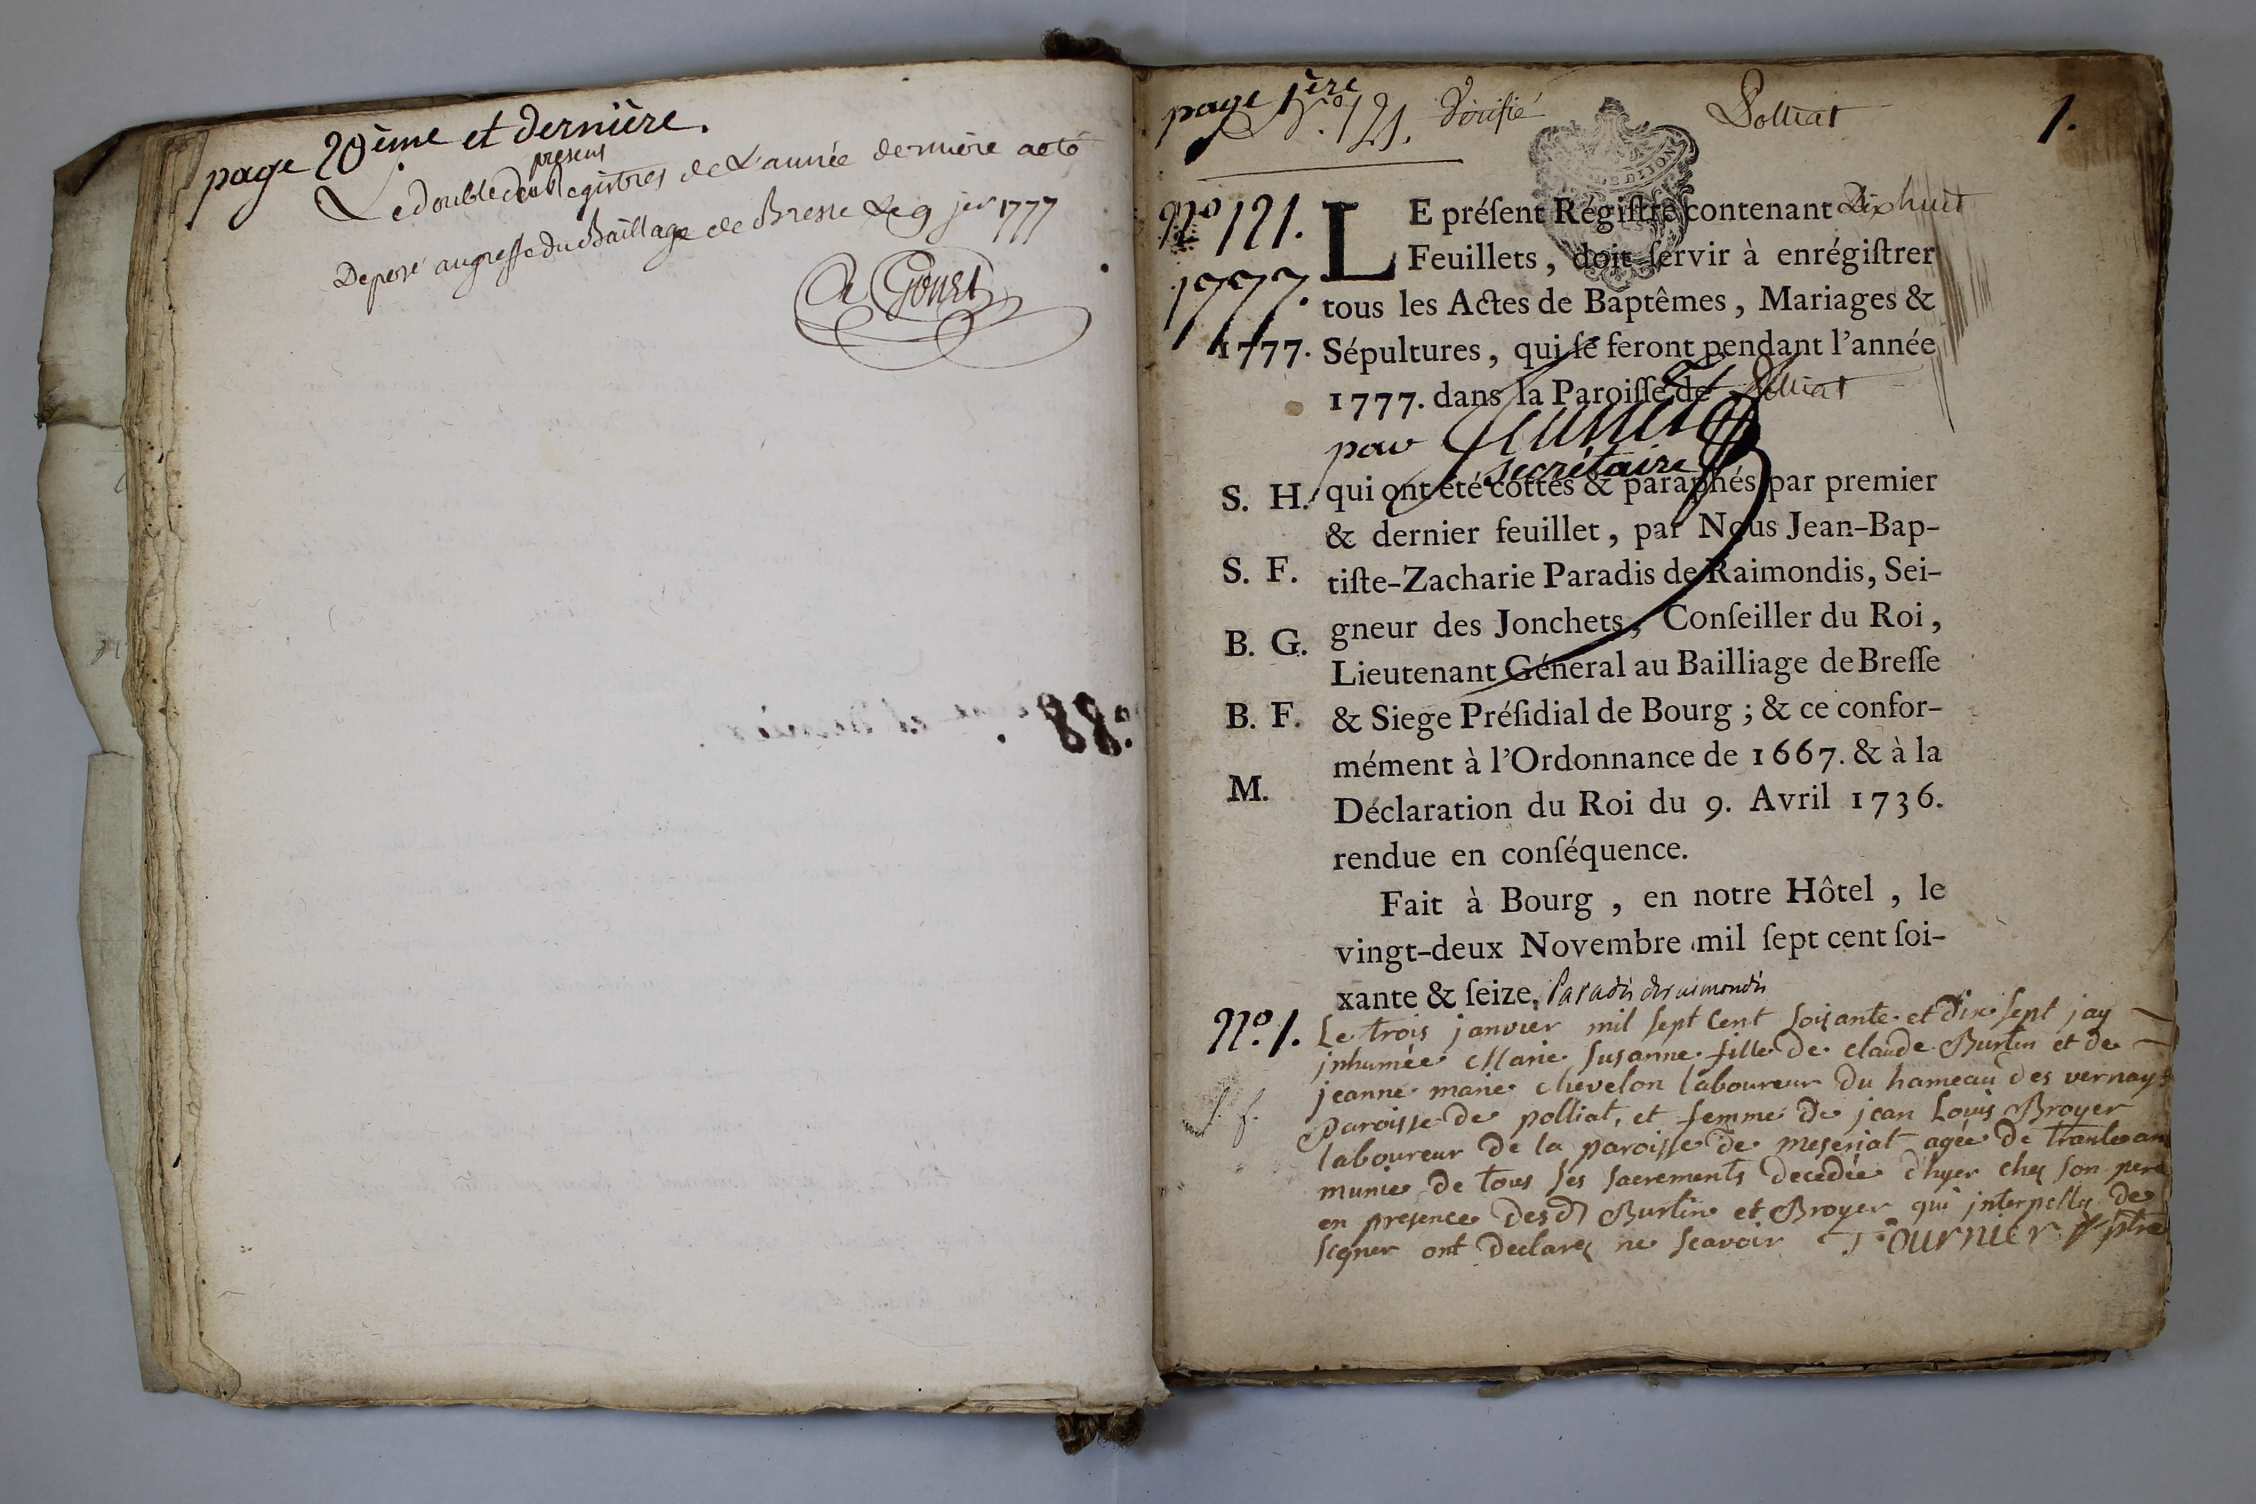 page 20ème et dernière.
present
Le double du Registres de L'année dernière acté
Deposé au greffe du Bailliage de Bresse Le 9 jer 1777
Gouet
page 1ère
No. 121. Vérifié
Polliat
1.
No 121.
1777.
1777.
LE préſent Régiſtre contenant Dix huit
Feuillets, doit ſervir à enrégiſtrer
tous les Actes de Baptêmes, Mariages &
Sépultures, qui ſe feront pendant l'année
1777. dans la Paroiſſe de Polliat
pour
secrétaire
S. H. qui ont été cottés & paraphés par premier
& dernier feuillet, par Nous Jean-Bap-
S. F. tiſte-Zacharie Paradis de Raimondis, Sei-
gneur des Jonchets, Conſeiller du Roi,
B. G. Lieutenant Géneral au Bailliage de Breſſe
B. F. & Siege Préſidial de Bourg; & ce confor-
mément à l'Ordonnance de 1667. & à la
M. Déclaration du Roi du 9. Avril 1736.
rendue en conſéquence.
Fait à Bourg, en notre Hôtel, le
vingt-deux Novembre mil ſept cent ſoi-
xante & ſeize, Paradis deraimondis
No. 1. Le trois janvier mil sept cent soixante et dix sept jay
inhumée Marie susanne fille de claude Burtin et de
jeanne marie chevelon laboureur du hameau des vernays
S. f. paroisse de polliat, et femme de jean Louis Broyer
laboureur de la paroisse de meseriat agée de trante ans
munie de tous ses sacrements decedée d'hyer chez son pere
en presence desd Burtin et Broyer qui interpellez de
signer ont declarez ne scavoir Fournier ptre